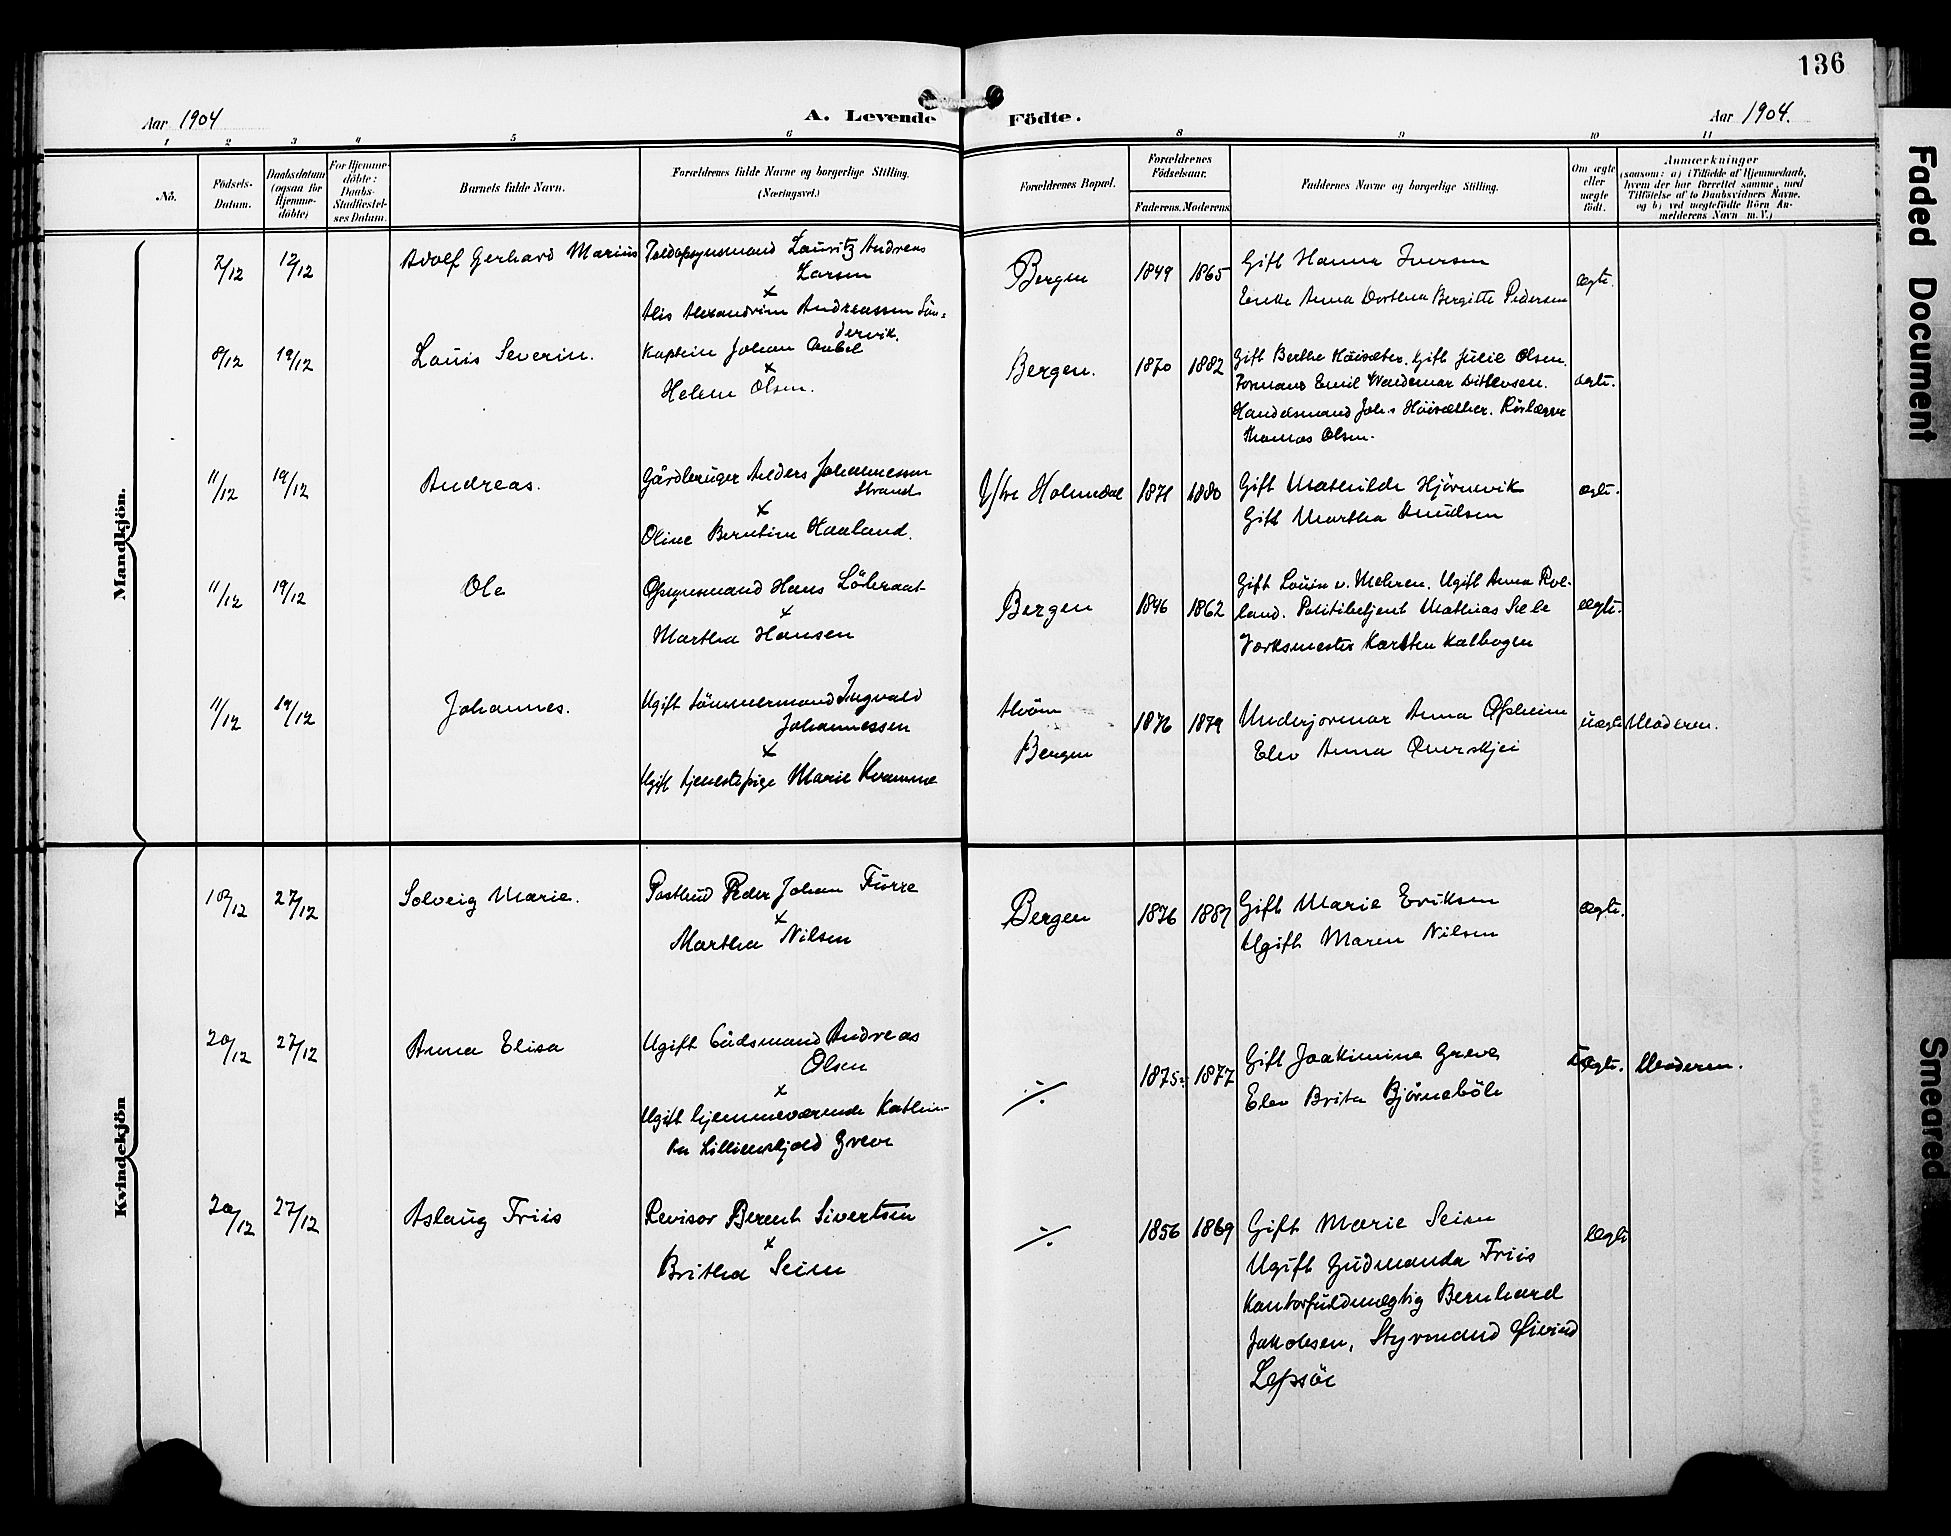 136
Aar 1904
A. Levende Födte.
Aar 1904.
1 2 3 4 5 6 8 9 10 11
No.
Födsels-Datum.
Daabsdatum (ogsaa for Hjemme-döbte)
For Hjemme-döbte: Daabs-Stadfæstel-ses Datum.
Barnets fulde Navn.
Forældrenes fulde Navne og borgerlige Stilling. (Næringsvei.)
Forældrenes Bopæl.
Forældrenes Födselsaar.
Faderens. Moderens.
Faddernes Navne og borgerlige Stilling.
Om ægte eller uægte födt.
Anmærkninger
(saasom: a) i Tilfælde af Hjemmedaab,
hvem der har forrettet samme, med
Tilföielse af to Daabsvidners Navne,
og b) ved uægtefödte Börn An-
melderens Navn m. V.)
Mandkjön.
7/12 12/12 Adolf Gerhard Marius
Toldopsynsmand Lauritz Andreas
Larsen
x
Alis Alexandrine Andreassen Sün=
dervik.
Bergen 1849 1865
Gift Hanna Iversen
Enke Anna Dorthea Bergitte Pedersen
ægte.
8/12 19/12 Louis Severin.
Kaptein Johan
x
Helene Olsen.
Bergen. 1870 1882
Gift Berthe Höisæter. Gift Julie Olsen.
Formand Emil Waldemar Ditlevsen.
Handelsmand Johs Höisæther.
Thomas Olsen.
ægte.
11/12 19/12 Andreas.
Gårdbruger Anders Johannessen
Strand
x
Oline Berntine Haaland.
Ytre Holmedal 1871 1880
Gift Mathilde Hjörnevik
Gift Martha Knudsen
ægte.
11/12 19/12 Ole
Opsynsmand Hans
x
Martha Hansen
Bergen 1846 1862
Gift Louise v. Mehren. Ugift Anna Rol-
land. Politibetjent Mathias Sele
Værksmester Karsten Kalhagen
ægte.
11/12 19/12 Johannes.
Ugift Tömmermand Ingvald
Johannessen
x
Ugift tjenestepige Marie Kvamme
Bergen 1876 1879
Underjormor Anna Opheim
Elev Anna
uægte Moderen.
Kvindekjön
10/12 27/12 Solveig Marie.
Postbud Peder Johan Furre
x
Martha Nilsen
Bergen 1876 1887
Gift Marie Eriksen
Ugift Maren Nilsen
ægte.
20/12 27/12 Anna Elisa
Ugift Bådsmand Andreas
Olsen
x
Ugift hjemmeværende Kathin-
ka Lillienskjold Greve
·/. 1875 1877
Gift Joakimine Greve
Elev Brita Björnebóle
Uægte. Moderen.
20/12 27/12 Aslaug Friis
Revisor Berent Sivertsen
x
Britha Seim
·/. 1856 1869
Gift Marie Seim
Ugift Gudmanda Friis
Kontorfuldmægtig Bernhard
Jakobsen, Styrmand Öivind
Lepsöe
ægte
Faded Document
Smeared